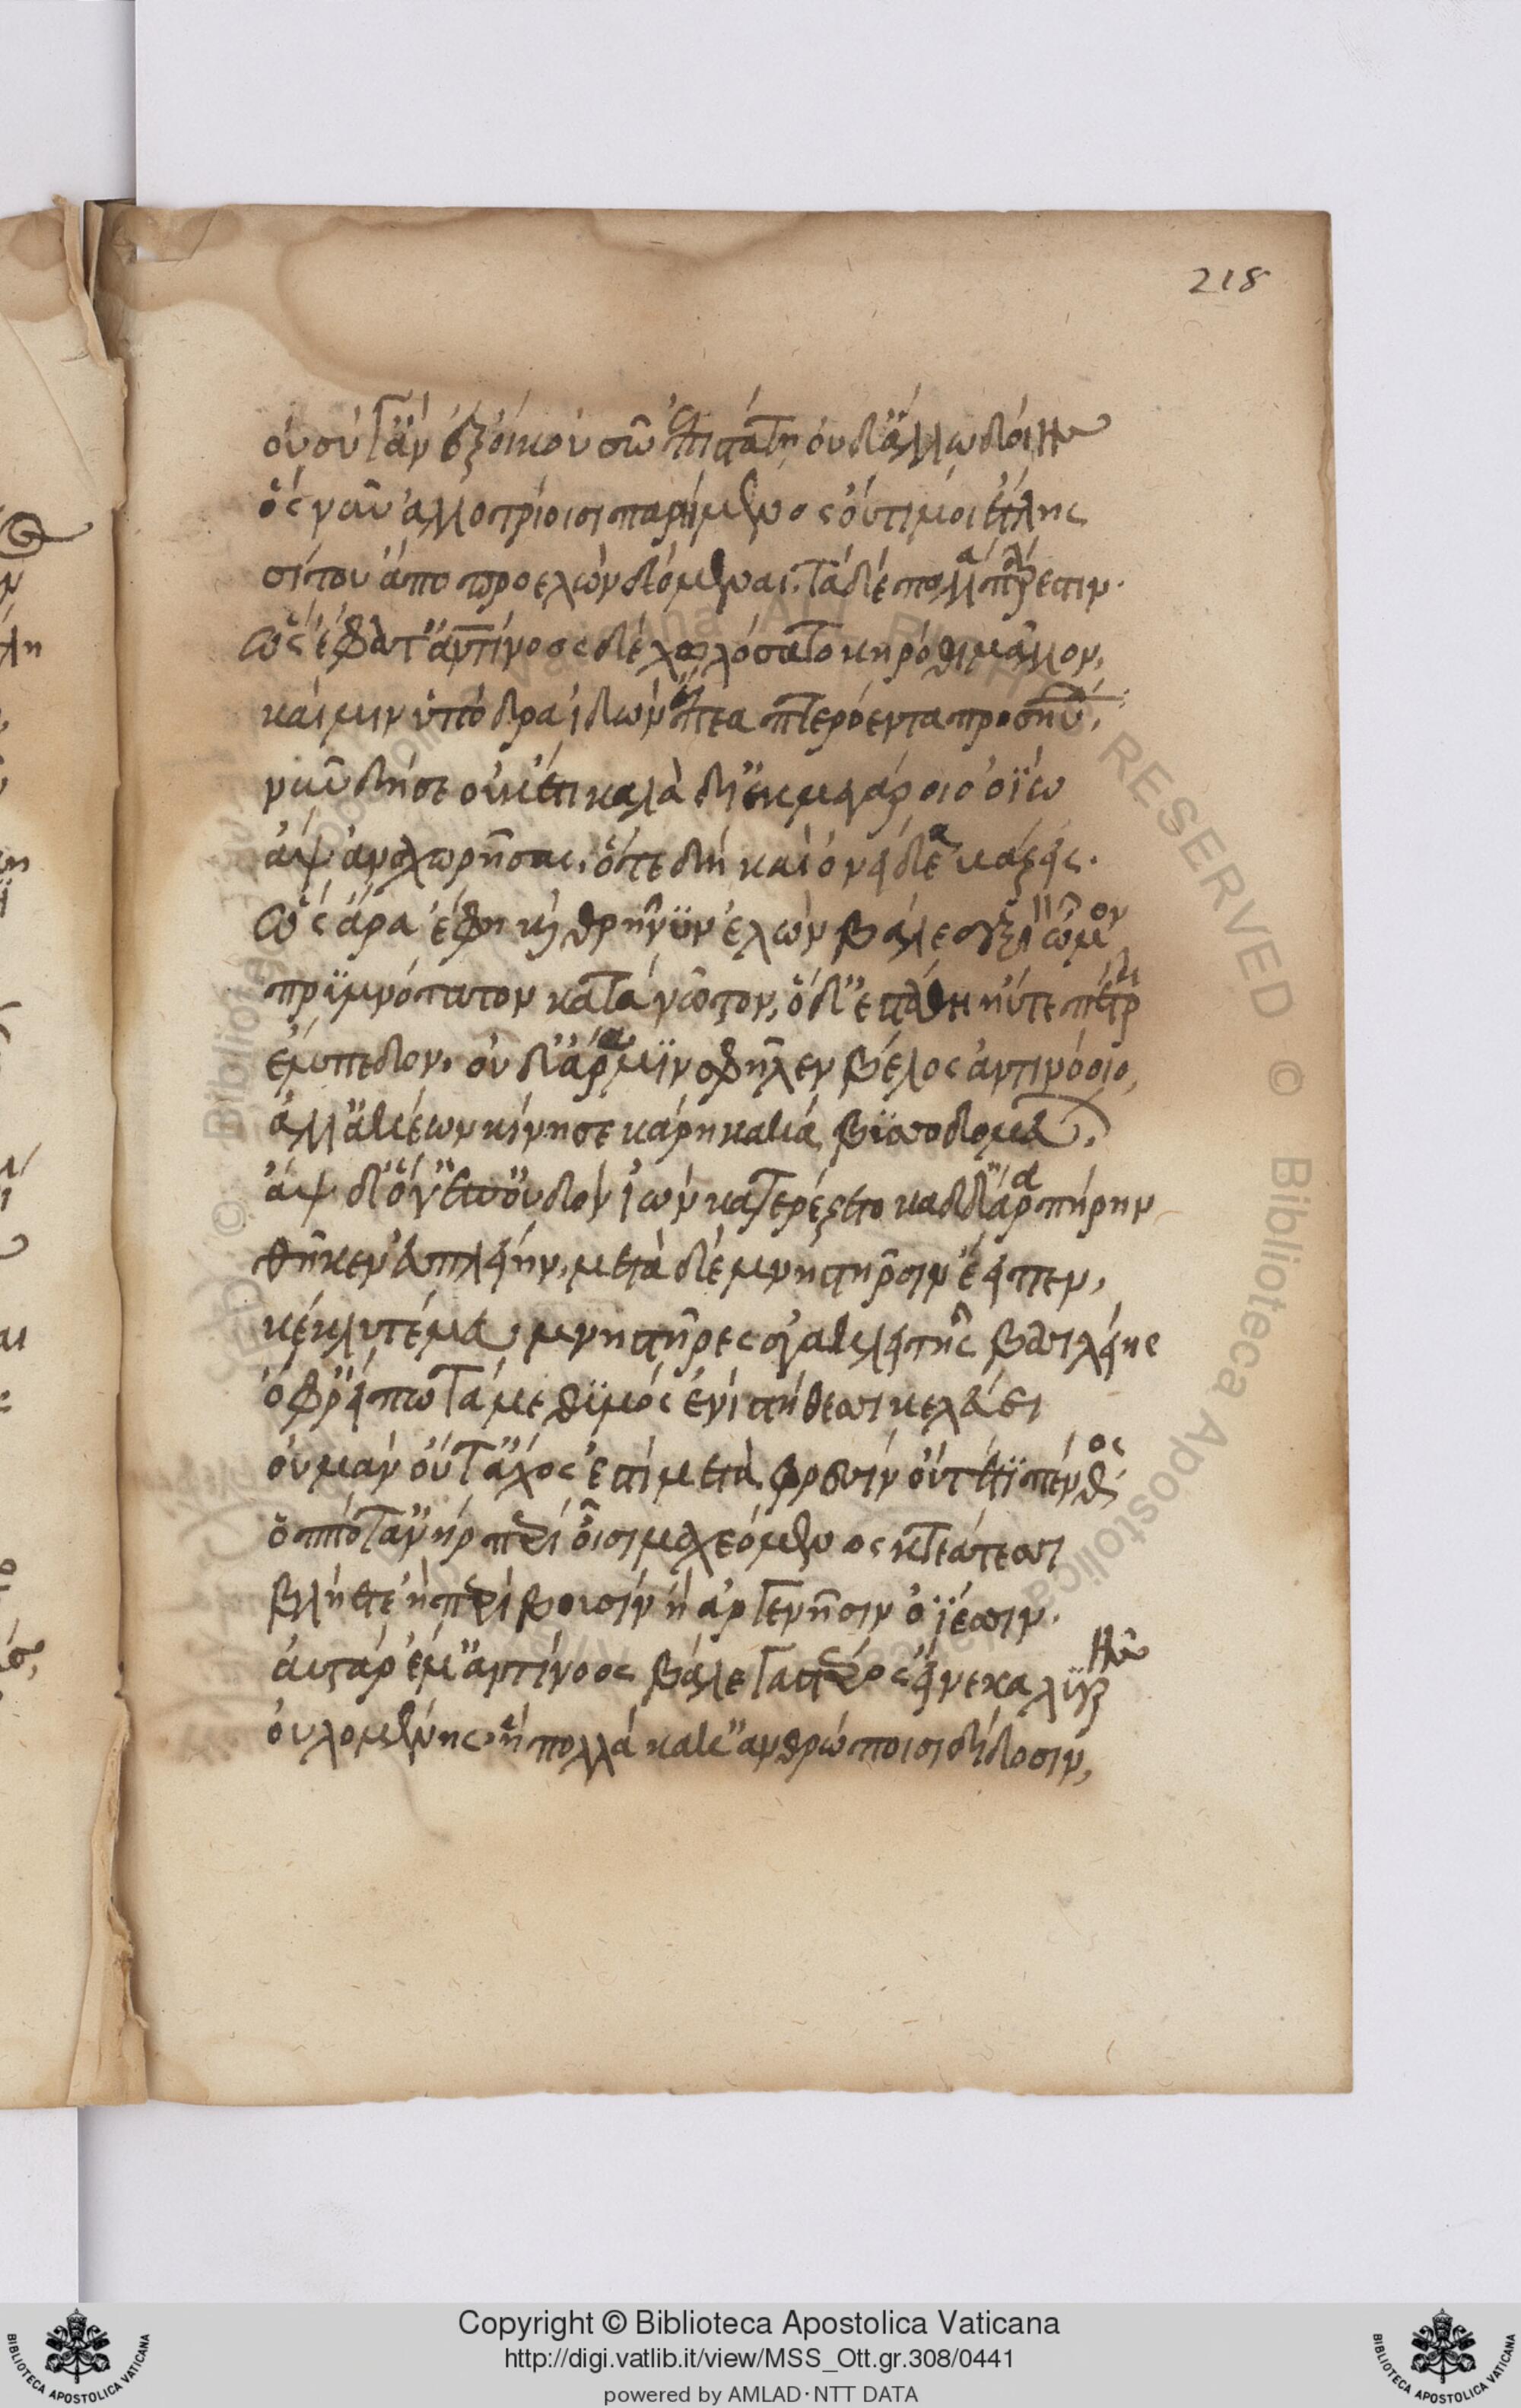 218
οὐ σύ γ' ἂν ἐξ οἴκου σῶ ἐπιστάτη οὐδ' ἅλα δοίης
ὃς νῦν ἀλλοτρίοισι παρήμενος οὔτι μοι ἔτλης
σίτου ἀπο προελὼν δόμεναι. τὰ δὲ πολλὰ πάρεστιν.
ὣς ἔφατ' ἀντίνοος δὲ χολώσατο κηρόθι μᾶλλον,
καί μιν ὑπόδρα ἰδὼν ἔπεα πτερόεντα προσηύδα,
νῦν δή σε οὐκέτι καλὰ δι' ἐκ μεγάροιο ὀΐω
ἂψ ἀναχωρήσειν, ὅτε δὴ καὶ ὀνείδεα βάζεις.
ὣς ἄρα ἔφη καὶ θρῆνυν ἑλὼν βάλε δεξιὸν ὦμον
πρυμνότατον κατὰ νῶτον, ὁ δ' ἐστάθη ἠύτε πέτρη
ἔμπεδον. οὐδ' ἄρα μιν σφῆλεν βέλος ἀντινόοιο,
ἀλλ' ἀκέων κίνησε κάρη κακὰ βυσσοδομεύων.
ἂψ δ' ὅγ' ἐπ' οὐδὸν ἰὼν κατ' ἄρ' ἕζετο καδδ' ἄρα πήρην
θῆκεν ἐϋπλείην, μετὰ δὲ μνηστῆρσιν ἔειπεν,
κέκλυτέ μευ μνηστῆρες ἀγακλειτῆς βασιλείης
ὄφρ' εἴπω τά με θυμὸς ἐνὶ στήθεσι κελεύει
οὐ μὰν οὔτ' ἄχος ἐστὶ μετὰ φρεσὶν οὔτέ τι πένθος
ὁππότ' ἀνὴρ περὶ οἷσι μαχεόμενος κτεάτεσσι
βλήεται ἢ περὶ βουσὶν ἢ ἀργεννῇσιν ὀΐεσσιν.
αὐτὰρ ἔμ' ἀντίνοος βάλε γαστέρος εἵνεκα λυγρῆς
οὐλομένης, ἣ πολλὰ κάκ' ἀνθρώποισι δίδωσιν,
Copyright © Biblioteca Apostolica Vaticana
http://digi.vatlib.it/view/MSS_Ott.gr.308/0441
powered by AMLAD·NTT DATA